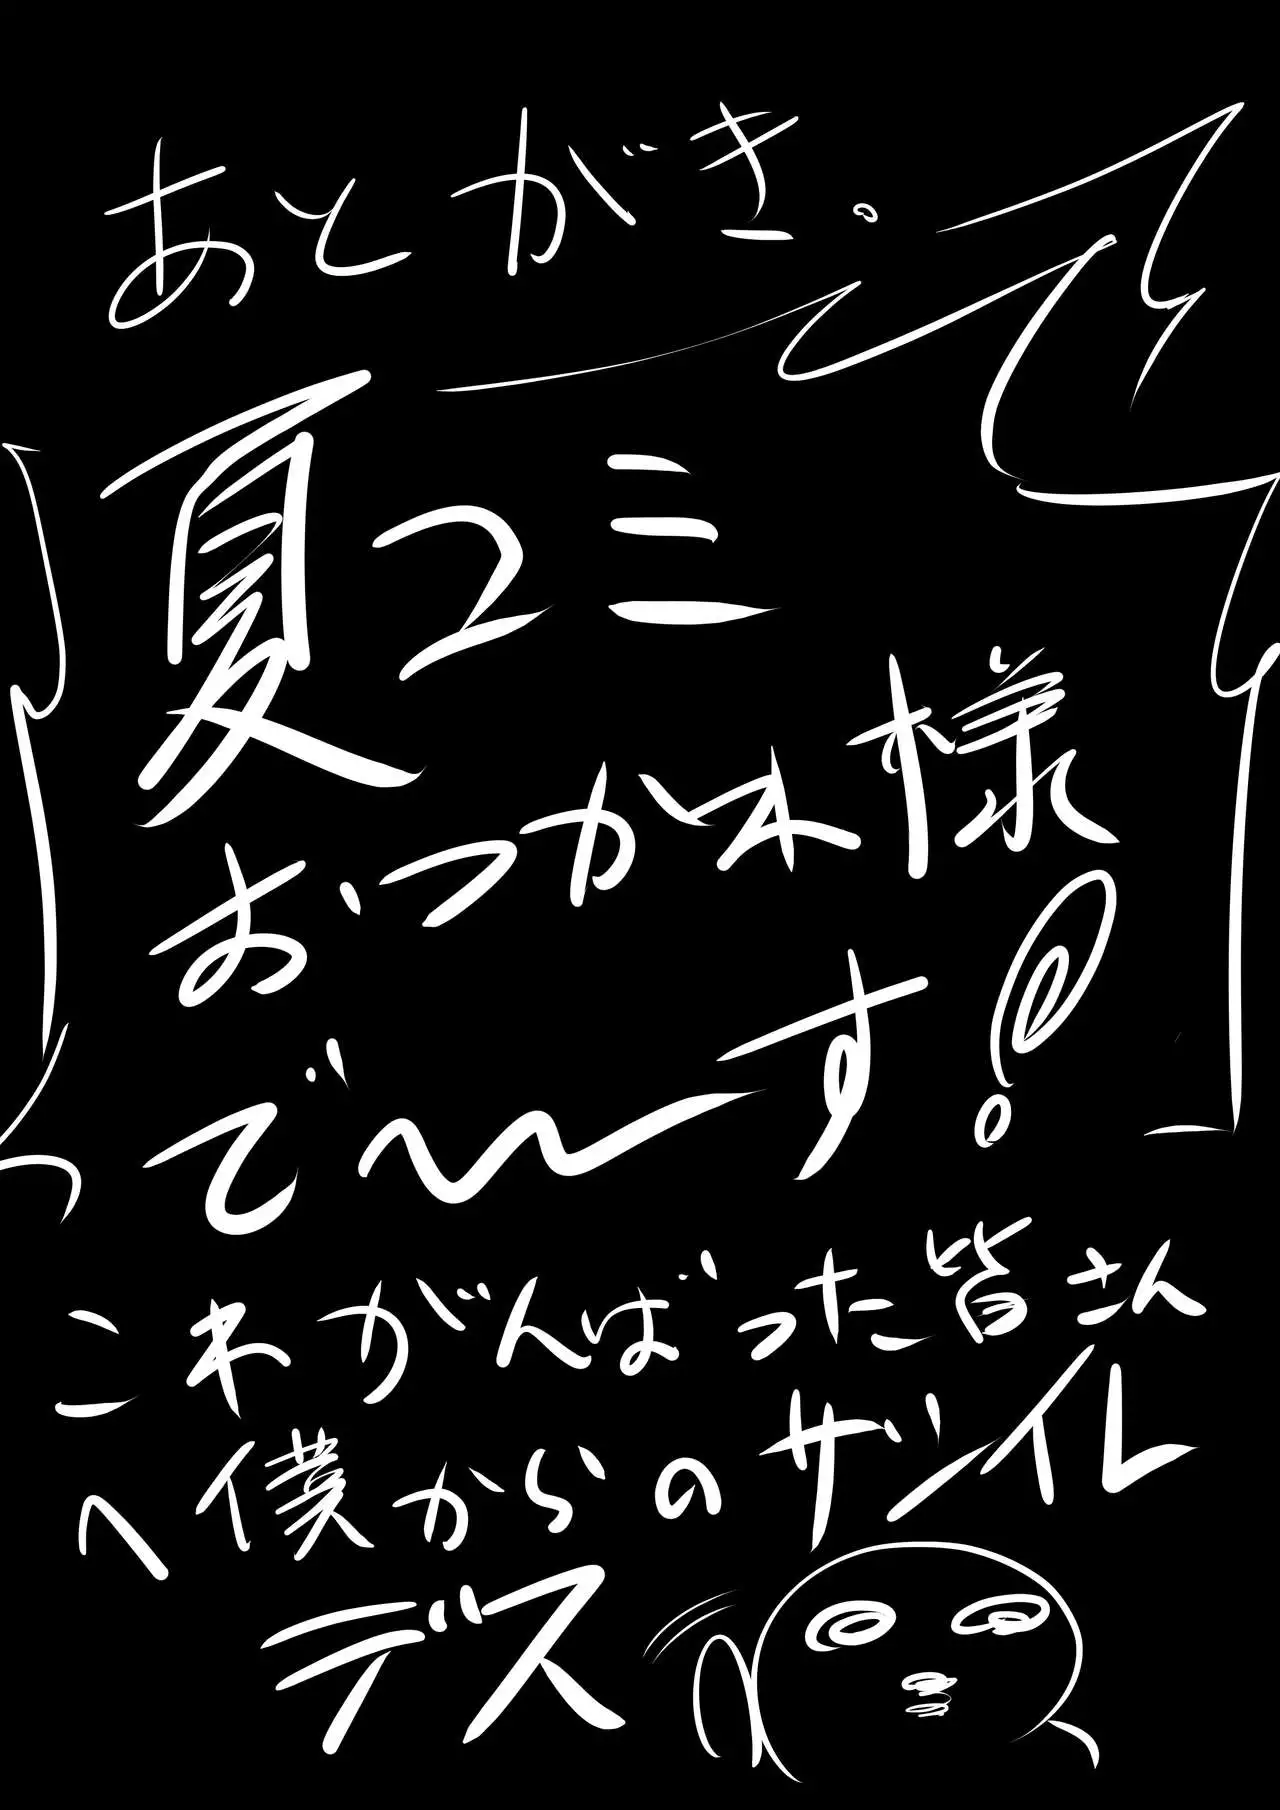 あとがき。
夏コミ
おつかれ様
で〜す!
これがんばった皆さん
へ僕からのサンイレ
デス